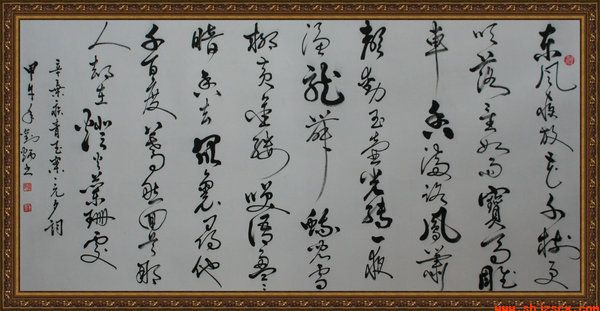 东风夜放花千树更
吹落星如雨寶马雕
車香满路鳳萧
声动玉壶光转一夜
鱼龍舞蛾儿雪
柳黄金缕笑语盈盈
暗香去眾里寻他
千百度蓦然回首那
人却在燈火阑珊处
辛弃疾青玉案元夕词
甲午年